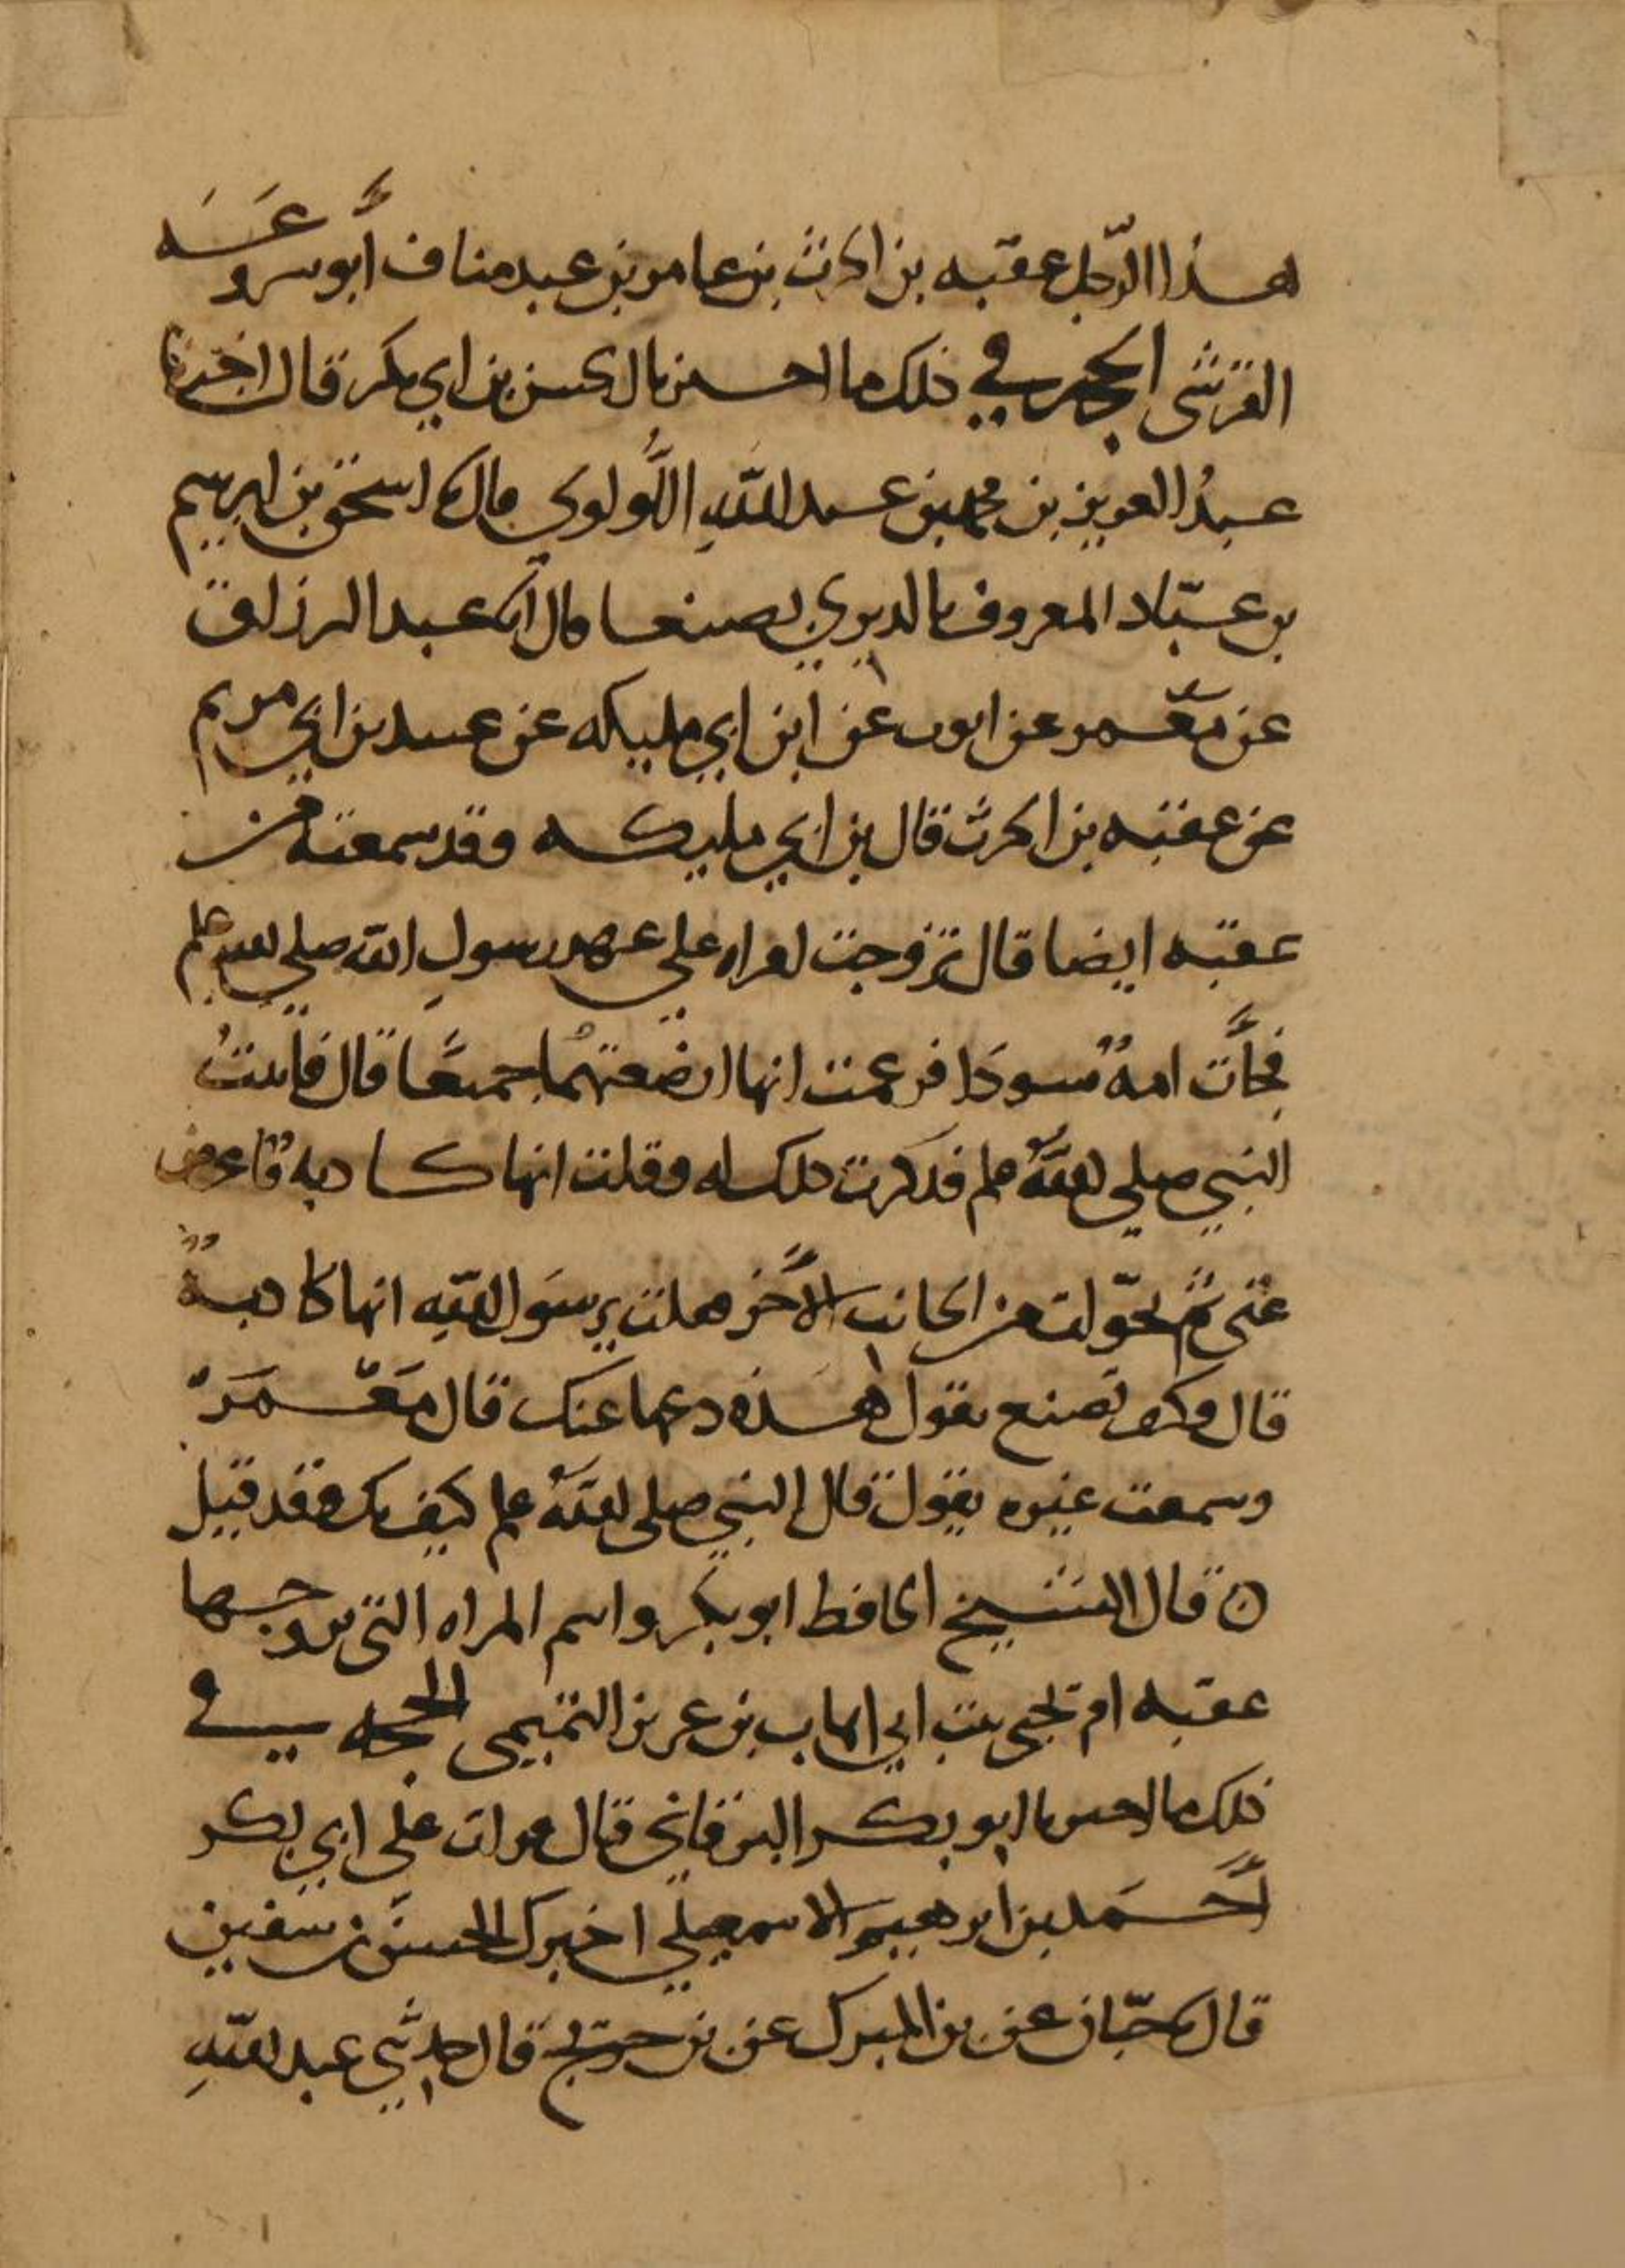 هذا الرّجل عقبه بن الحرث بن عامر بن عبد مناف أبو سروعَه
القرشي الحجه في ذلك ما اخبرنا الحسن بن ابي بكر قال اخبرنا
عبدُ العزيز بن محمد بن عبد اللهِ اللُّولوي قال نا اسحق بن ابرهيم
بن عبّاد المعروف بالدبري بصنعا قال انا عبد الرزاق
عن مَعْمر عن ايوب عن ابن ابي مليكه عن عبيد بن ابي مريم
عن عقبه بن الحرث قال بن ابي مليكه وقد سمعته من
عقبه ايضا قال تزوجت امراه على عهد رسولِ الله صلى الله عليه وسلم
فجأَت امةٌ سودَا فزعمت انها ارضعتهُما جميعًا قال فاتيتُ
النبي صلى اللهُ علم فذكرت ذلك له وقلت انها كاذبه فاعرض
عني ثم تحوّلت من الجانب الأَخر فقلت يرسَول اللهِ انها كاذبةٌ
قال وكيف تصنع بقول هذه دعها عنك قال مَعْمَرٌ
وسمعت غيره يقول قال النبي صلى اللهُ علم كيف بك وقد قيل
ه قال الشيخ الحافظ ابو بكر واسم المراه التي تزوجها
عقبه ام يحيى بنت ابي اهاب بن عزيز التميمي الحجه في
ذلك ما اخبرنا ابو بكر البرقاني قال قرات على ابي بكر
أَحمَد بن ابرهيم الاسمعيلي اخبرك الحسن بن سفين
قال نا حبّان عن بن المبرك عن بن جريج قال حدثني عبد اللهِ